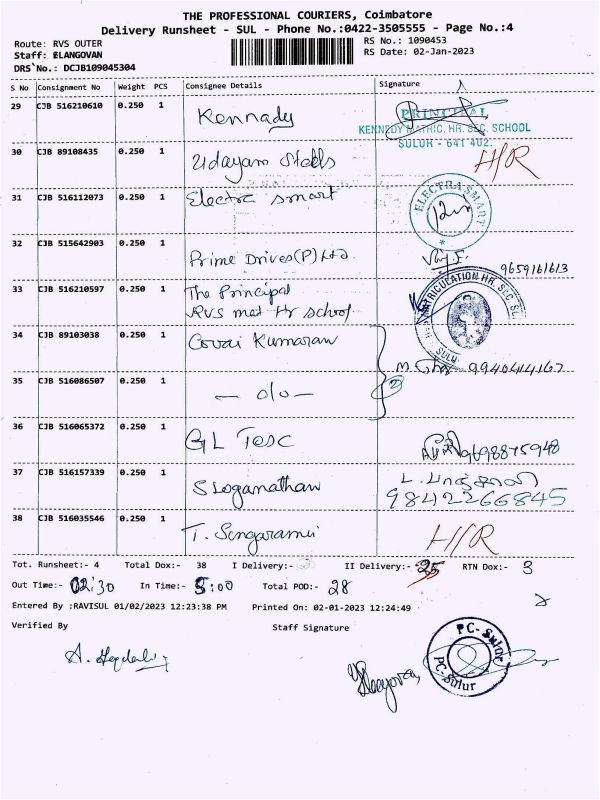 THE PROFESSIONAL COURIERS, Coimbatore
Delivery Runsheet - SUL - Phone No.:0422-3505555 - Page No.:4
Route: RVS OUTER
RS No.: 1090453
Staff: ELANGOVAN
RS Date: 02-Jan-2023
DRS No.: DCJB109045304
S No Consignment No Weight PCS Consignee Details Signature
29 CJB 516210610 0.250 1 Kennady
PRINCIPAL
KENNEDY MATRIC. HR. SEC. SCHOOL
SULUR - 641 402.
30 CJB 89108435 0.250 1 Udayam Steels H/R
31 CJB 516112073 0.250 1 Electra smart
ELECTRA SMART
32 CJB 515642903 0.250 1 Prime Drives(P) Ltd
9659161613
33 CJB 516210597 0.250 1 The Principal
RVS mat Hr school
MATRICULATION HR. SEC. SC
SULU
34 CJB 89103038 0.250 1 Covai Kumaran
9940414167
35 CJB 516086507 0.250 1 — do — 2
36 CJB 516065372 0.250 1 GL Tesc
9698875948
37 CJB 516157339 0.250 1 S Loganathan
9842266845
38 CJB 516035546 0.250 1 T. Singarami H/R
Tot. Runsheet:- 4 Total Dox:- 38 I Delivery:- II Delivery:- 25 RTN Dox:- 3
Out Time:- 02:30 In Time:- 5:00 Total POD:- 28
Entered By :RAVISUL 01/02/2023 12:23:38 PM Printed On: 02-01-2023 12:24:49
Verified By Staff Signature
PC-Sulur
PC-Sulur